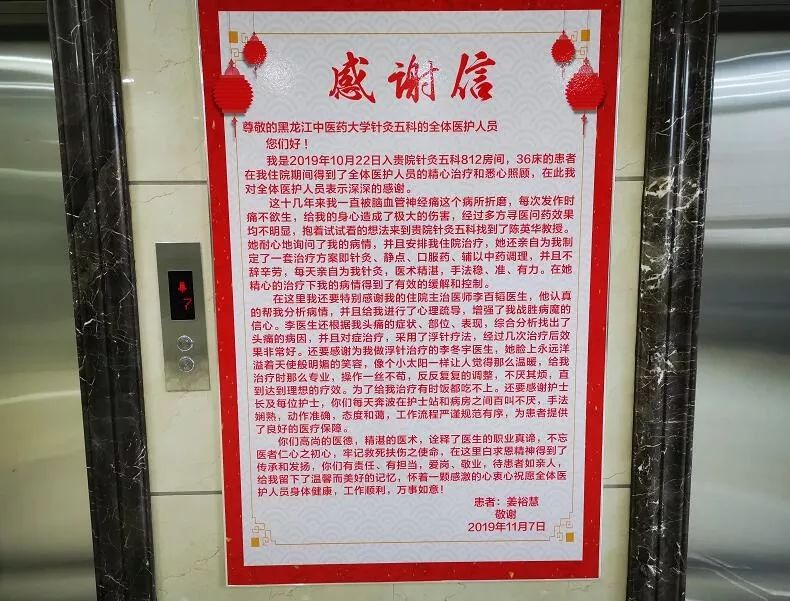 感谢信
尊敬的黑龙江中医药大学针灸五科的全体医护人员
您们好！
我是2019年10月22日入贵院针灸五科812房间，36床的患者
在我住院期间得到了全体医护人员的精心治疗和悉心照顾，在此我
对全体医护人员表示深深的感谢。
这十几年来我一直被脑血管神经痛这个病所折磨，每次发作时
痛不欲生，给我的身心造成了极大的伤害，经过多方寻医问药效果
均不明显，抱着试试看的想法来到贵院针灸五科找到了陈英华教授。
她耐心地询问了我的病情，并且安排我住院治疗，她还亲自为我制
定了一套治疗方案即针灸、静点、口服药、辅以中药调理，并且不
辞辛劳，每天亲自为我针灸，医术精湛，手法稳、准、有力。在她
精心的治疗下我的病情得到了有效的缓解和控制。
在这里我还要特别感谢我的住院主治医师李百韬医生，他认真
的帮我分析病情，并且给我进行了心理疏导，增强了我战胜病魔的
信心。李医生还根据我头痛的症状、部位、表现，综合分析找出了
头痛的病因，并且对症治疗，采用了浮针疗法，经过几次治疗后效
果非常好。还要感谢为我做浮针治疗的李冬宇医生，她脸上永远洋
溢着天使般明媚的笑容，像个小太阳一样让人觉得那么温暖，给我
治疗时那么专业，操作一丝不苟，反反复复的调整，不厌其烦，直
到达到理想的疗效。为了给我治疗有时饭都吃不上。还要感谢护士
长及每位护士，你们每天奔波在护士站和病房之间百叫不厌，手法
娴熟，动作准确，态度和蔼，工作流程严谨规范有序，为患者提供
了良好的医疗保障。
你们高尚的医德，精湛的医术，诠释了医生的职业真谛，不忘
医者仁心之初心，牢记救死扶伤之使命，在这里白求恩精神得到了
传承和发扬，你们有责任、有担当，爱岗、敬业，待患者如亲人，
给我留下了温馨而美好的记忆，怀着一颗感激的心衷心祝愿全体医
护人员身体健康，工作顺利，万事如意！
患者：姜裕慧
敬谢
2019年11月7日
7